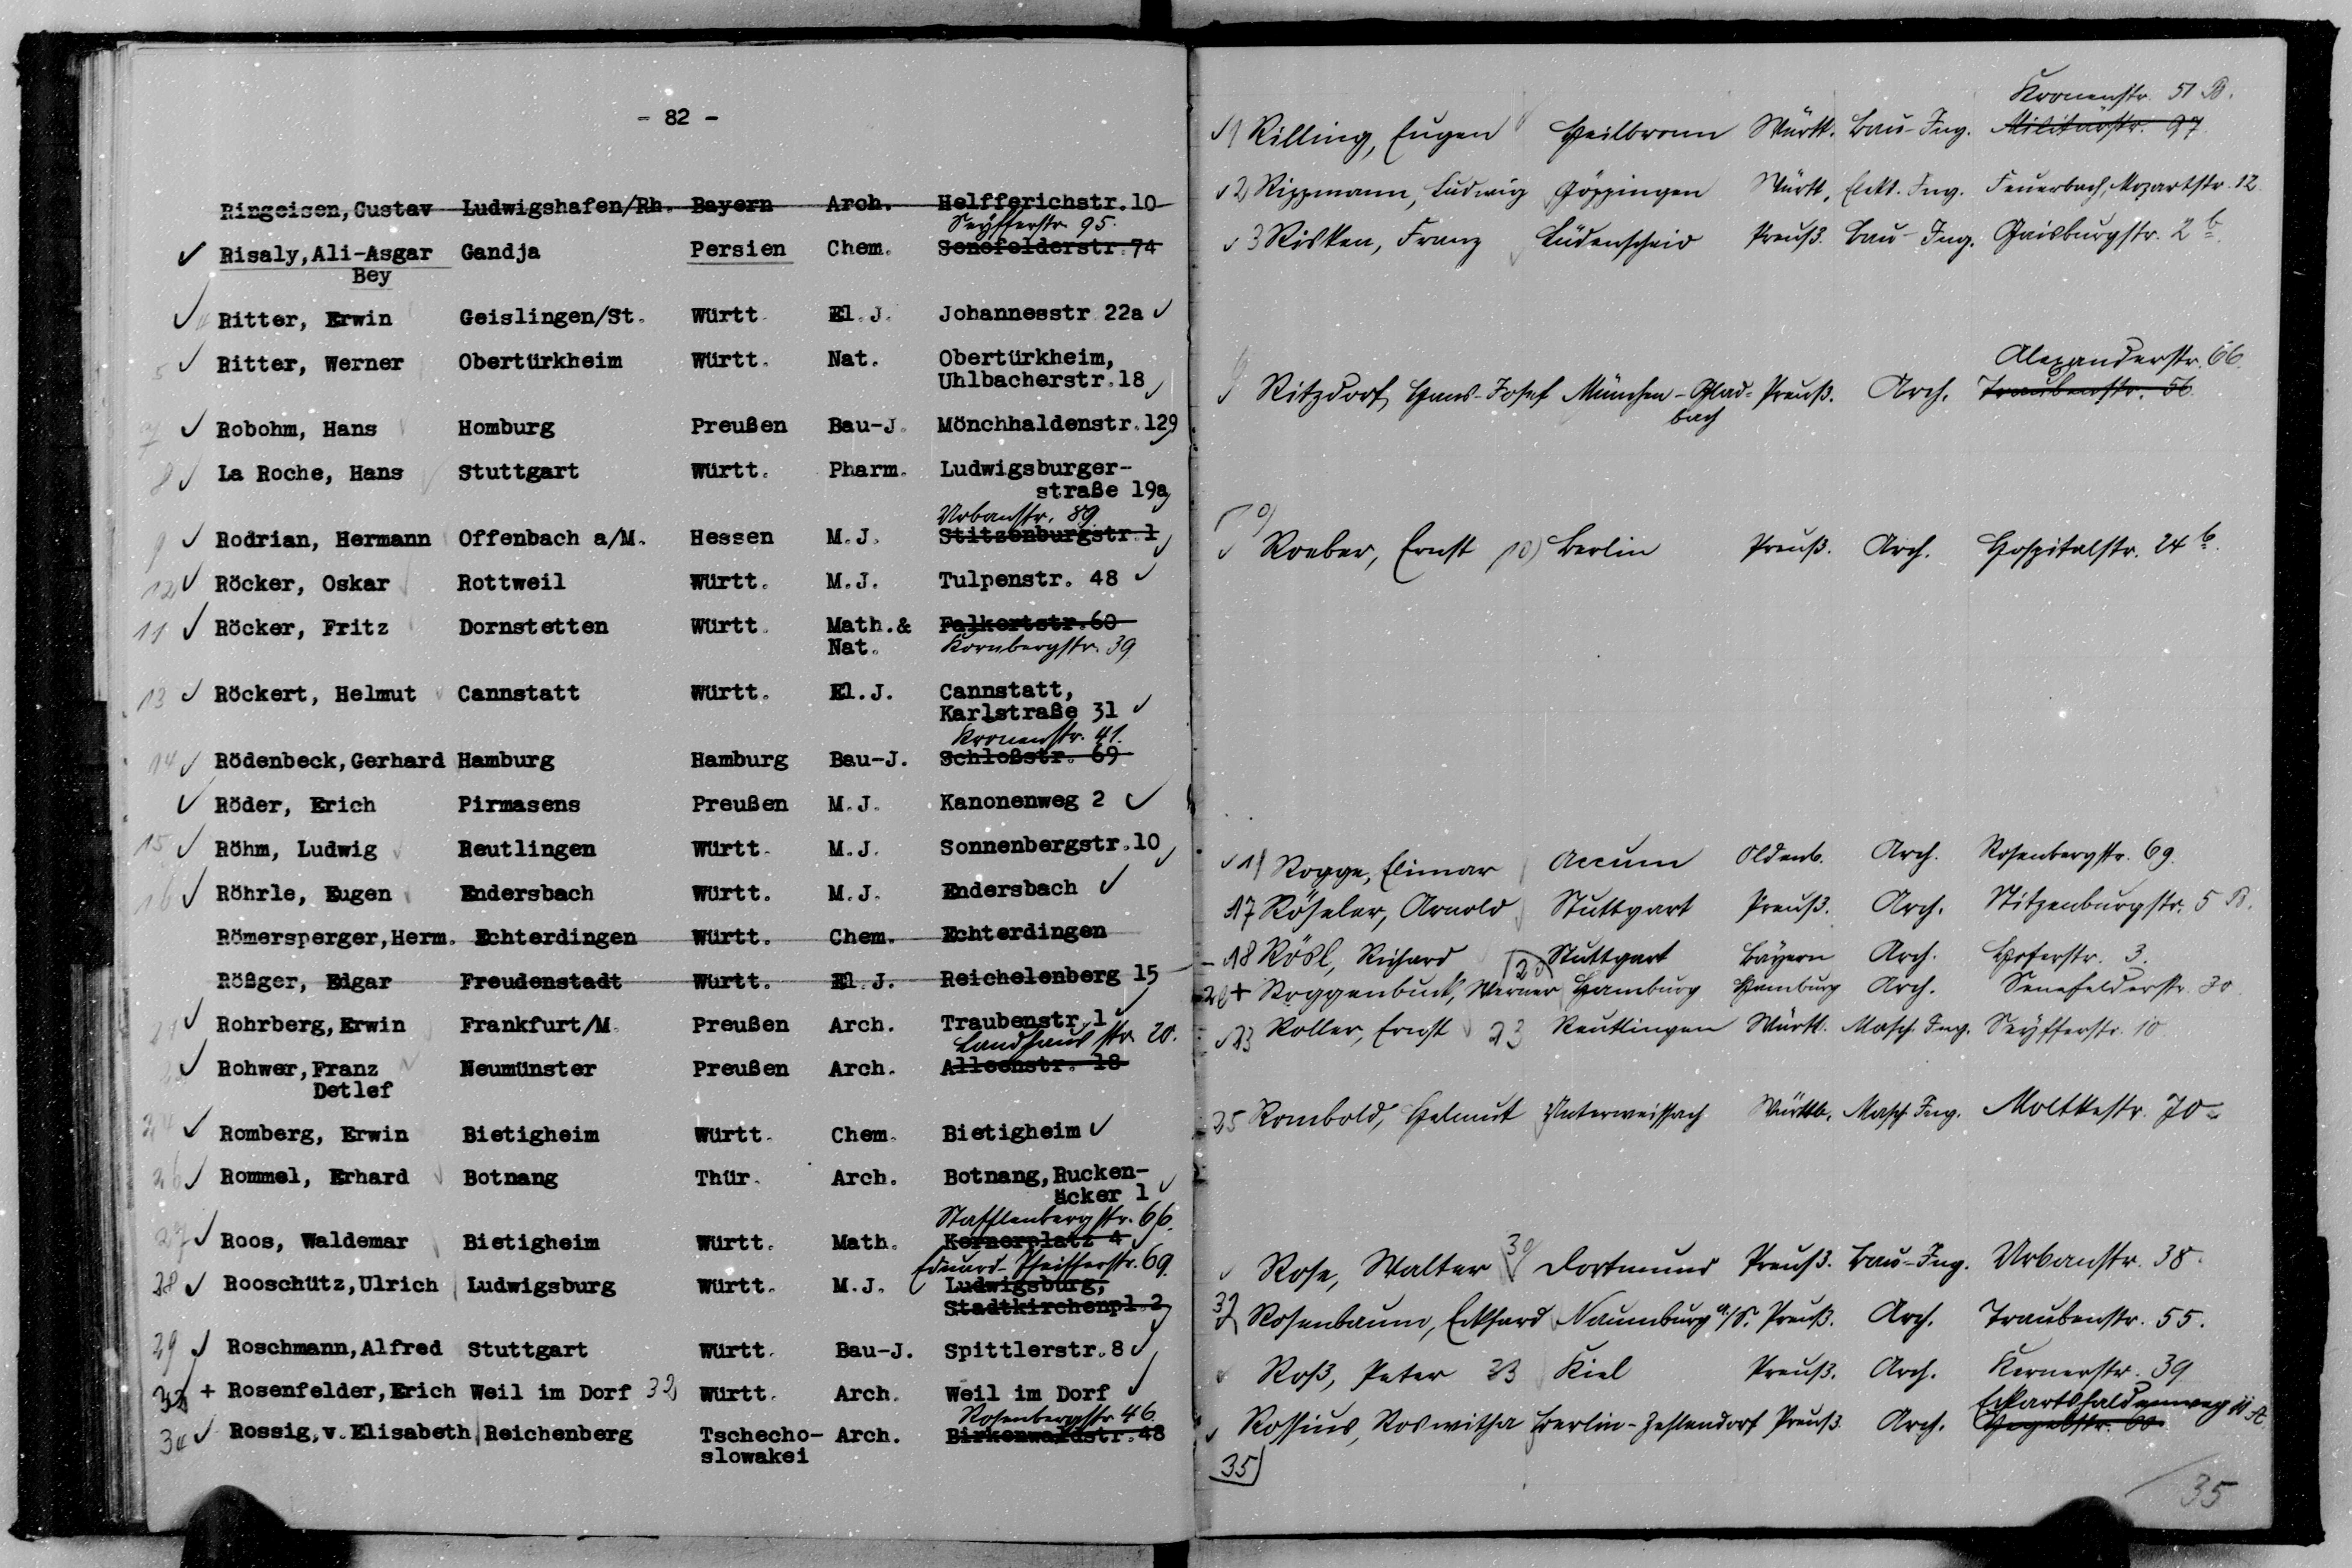 - 82 -
Ringeisen, Gustav Ludwigshafen/Rh. Bayern Arch. Helfferichstr. 10
Seyfferstr. 95.
✓ Risaly, Ali-Asgar Gandja Persien Chem. Senefelderstr. 74
Bey
✓ 4 Ritter, Erwin Geislingen/St. Württ. El.J. Johannesstr 22a ✓
5 ✓ Ritter, Werner Obertürkheim Württ. Nat. Obertürkheim,
Uhlbacherstr. 18 ✓
7 ✓ Robohm, Hans Homburg Preußen Bau-J. Mönchhaldenstr. 129
8 ✓ La Roche, Hans Stuttgart Württ. Pharm. Ludwigsburger-
straße 19a
Urbanstr. 89.
9 ✓ Rodrian, Hermann Offenbach a/M. Hessen M.J. Stitzenburgstr. 1
12 ✓ Röcker, Oskar Rottweil Württ. M.J. Tulpenstr. 48 ✓
11 ✓ Röcker, Fritz Dornstetten Württ. Math.& Falkertstr. 60
Nat. Kornbergstr. 39
13 ✓ Röckert, Helmut Cannstatt Württ. El.J. Cannstatt,
Karlstraße 31 ✓
Kronenstr. 41.
14 ✓ Rödenbeck, Gerhard Hamburg Hamburg Bau-J. Schloßstr. 69
✓ Röder, Erich Pirmasens Preußen M.J. Kanonenweg 2 ✓
15 ✓ Röhm, Ludwig Reutlingen Württ. M.J. Sonnenbergstr. 10 ✓
16 ✓ Röhrle, Eugen Endersbach Württ. M.J. Endersbach ✓
Römersperger, Herm. Echterdingen Württ. Chem. Echterdingen
Rößger, Edgar Freudenstadt Württ. El.J. Reichelenberg 15
21 ✓ Rohrberg, Erwin Frankfurt/M. Preußen Arch. Traubenstr. 1 ✓
Landhausstr. 20.
✓ Rohwer, Franz Neumünster Preußen Arch. Alleenstr. 18
Detlef
24 ✓ Romberg, Erwin Bietigheim Württ. Chem. Bietigheim ✓
26 ✓ Rommel, Erhard Botnang Thür. Arch. Botnang, Rucken-
äcker 1 ✓
Stafflenbergstr. 66.
27 ✓ Roos, Waldemar Bietigheim Württ. Math. Kernerplatz 4
Eduard-Pfeifferstr. 69.
28 ✓ Rooschütz, Ulrich Ludwigsburg Württ. M.J. Ludwigsburg,
Stadtkirchenpl. 2
29 ✓ Roschmann, Alfred Stuttgart Württ. Bau-J. Spittlerstr. 8 ✓
+ Rosenfelder, Erich Weil im Dorf 32 Württ. Arch. Weil im Dorf ✓
Rosenbergstr. 46.
34 ✓ Rossig, v. Elisabeth Reichenberg Tschecho- Arch. Birkenwaldstr. 48
slowakei
Kronenstr. 51 B.
✓ 1 Rilling, Eugen Heilbronn Württ. Bau-Ing. Militärstr. 97
✓ 2 Rippmann, Ludwig Göppingen Württ. Elekt. Ing. Feuerbach, Mozartstr. 12
✓ 3 Risken, Franz Lüdenscheid Preuß. Bau-Ing. Gaisburgstr. 2 b.
Alexanderstr. 66.
Ritzdorf, Hans-Josef München-Glad- Preuß. Arch. Traubenstr. 56
bach
✓ Roeber, Ernst 10) Berlin Preuß. Arch. Hospitalstr. 24 b.
✓ Rogge, Elimar Accum Oldenb. Arch. Rosenbergstr. 69.
17 Röseler, Arnold Stuttgart Preuß. Arch. Stitzenburgstr. 5 B.
- 18 Rösl, Richard Stuttgart Bayern Arch. Hoferstr. 3.
+ Roggenbuck, Werner Hamburg Hamburg Arch. Senefelderstr. 30
✓ 23 Roller, Ernst 23 Reutlingen Württ. Masch. Ing. Seyfferstr. 10
25 Rombold, Helmut Unterweissach Württb. Masch. Ing. Moltkestr. 70
✓ Rose, Walter 30 Dortmund Preuß. Bau-Ing. Urbanstr. 38.
Rosenbaum, Eckhard Naumburg a/S. Preuß. Arch. Traubenstr. 55.
Roß, Peter 33 Kiel Preuß. Arch. Kernerstr. 39
Eckartshaldenweg
✓ Rossius, Roswitha Berlin-Zehlendorf Preuß. Arch.
35
35